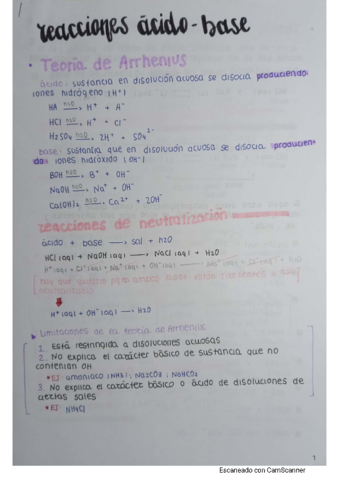 reacciones ácido-base
• Teoría de Arrhenius
ácido: sustancia en disolución acuosa se disocia produciendo
iones hidrógeno (H⁺)
HA —H₂O→ H⁺ + A⁻
HCl —H₂O→ H⁺ + Cl⁻
H₂SO₄ —H₂O→ 2H⁺ + SO₄²⁻
base: sustancia que en disolución acuosa se disocia produciendo
iones hidróxido (OH⁻)
BOH —H₂O→ B⁺ + OH⁻
NaOH —H₂O→ Na⁺ + OH⁻
Ca(OH)₂ —H₂O→ Ca²⁺ + 2OH⁻
reacciones de neutralización
ácido + base → sal + H₂O
HCl (aq) + NaOH (aq) → NaCl (aq) + H₂O
H⁺ (aq) + Cl⁻ (aq) + Na⁺ (aq) + OH⁻ (aq) → Na⁺ (aq) + Cl⁻ (aq) + H₂O
H⁺ (aq) + OH⁻ (aq) → H₂O
Limitaciones de la teoría de Arrhenius
1. Está restringida a disoluciones acuosas
2. No explica el carácter básico de sustancia que no
contenían OH
• EJ: amoniaco (NH₃); Na₂CO₃; NaHCO₃
3. No explica el carácter básico o ácido de disoluciones de
ciertas sales
• EJ: NH₄Cl
1
Escaneado con CamScanner